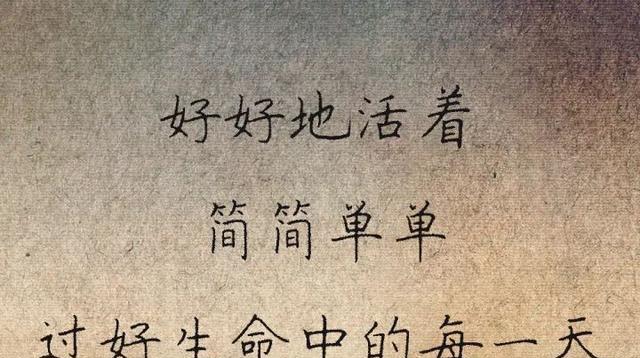 好好地活着
简简单单
过好生命中的每一天